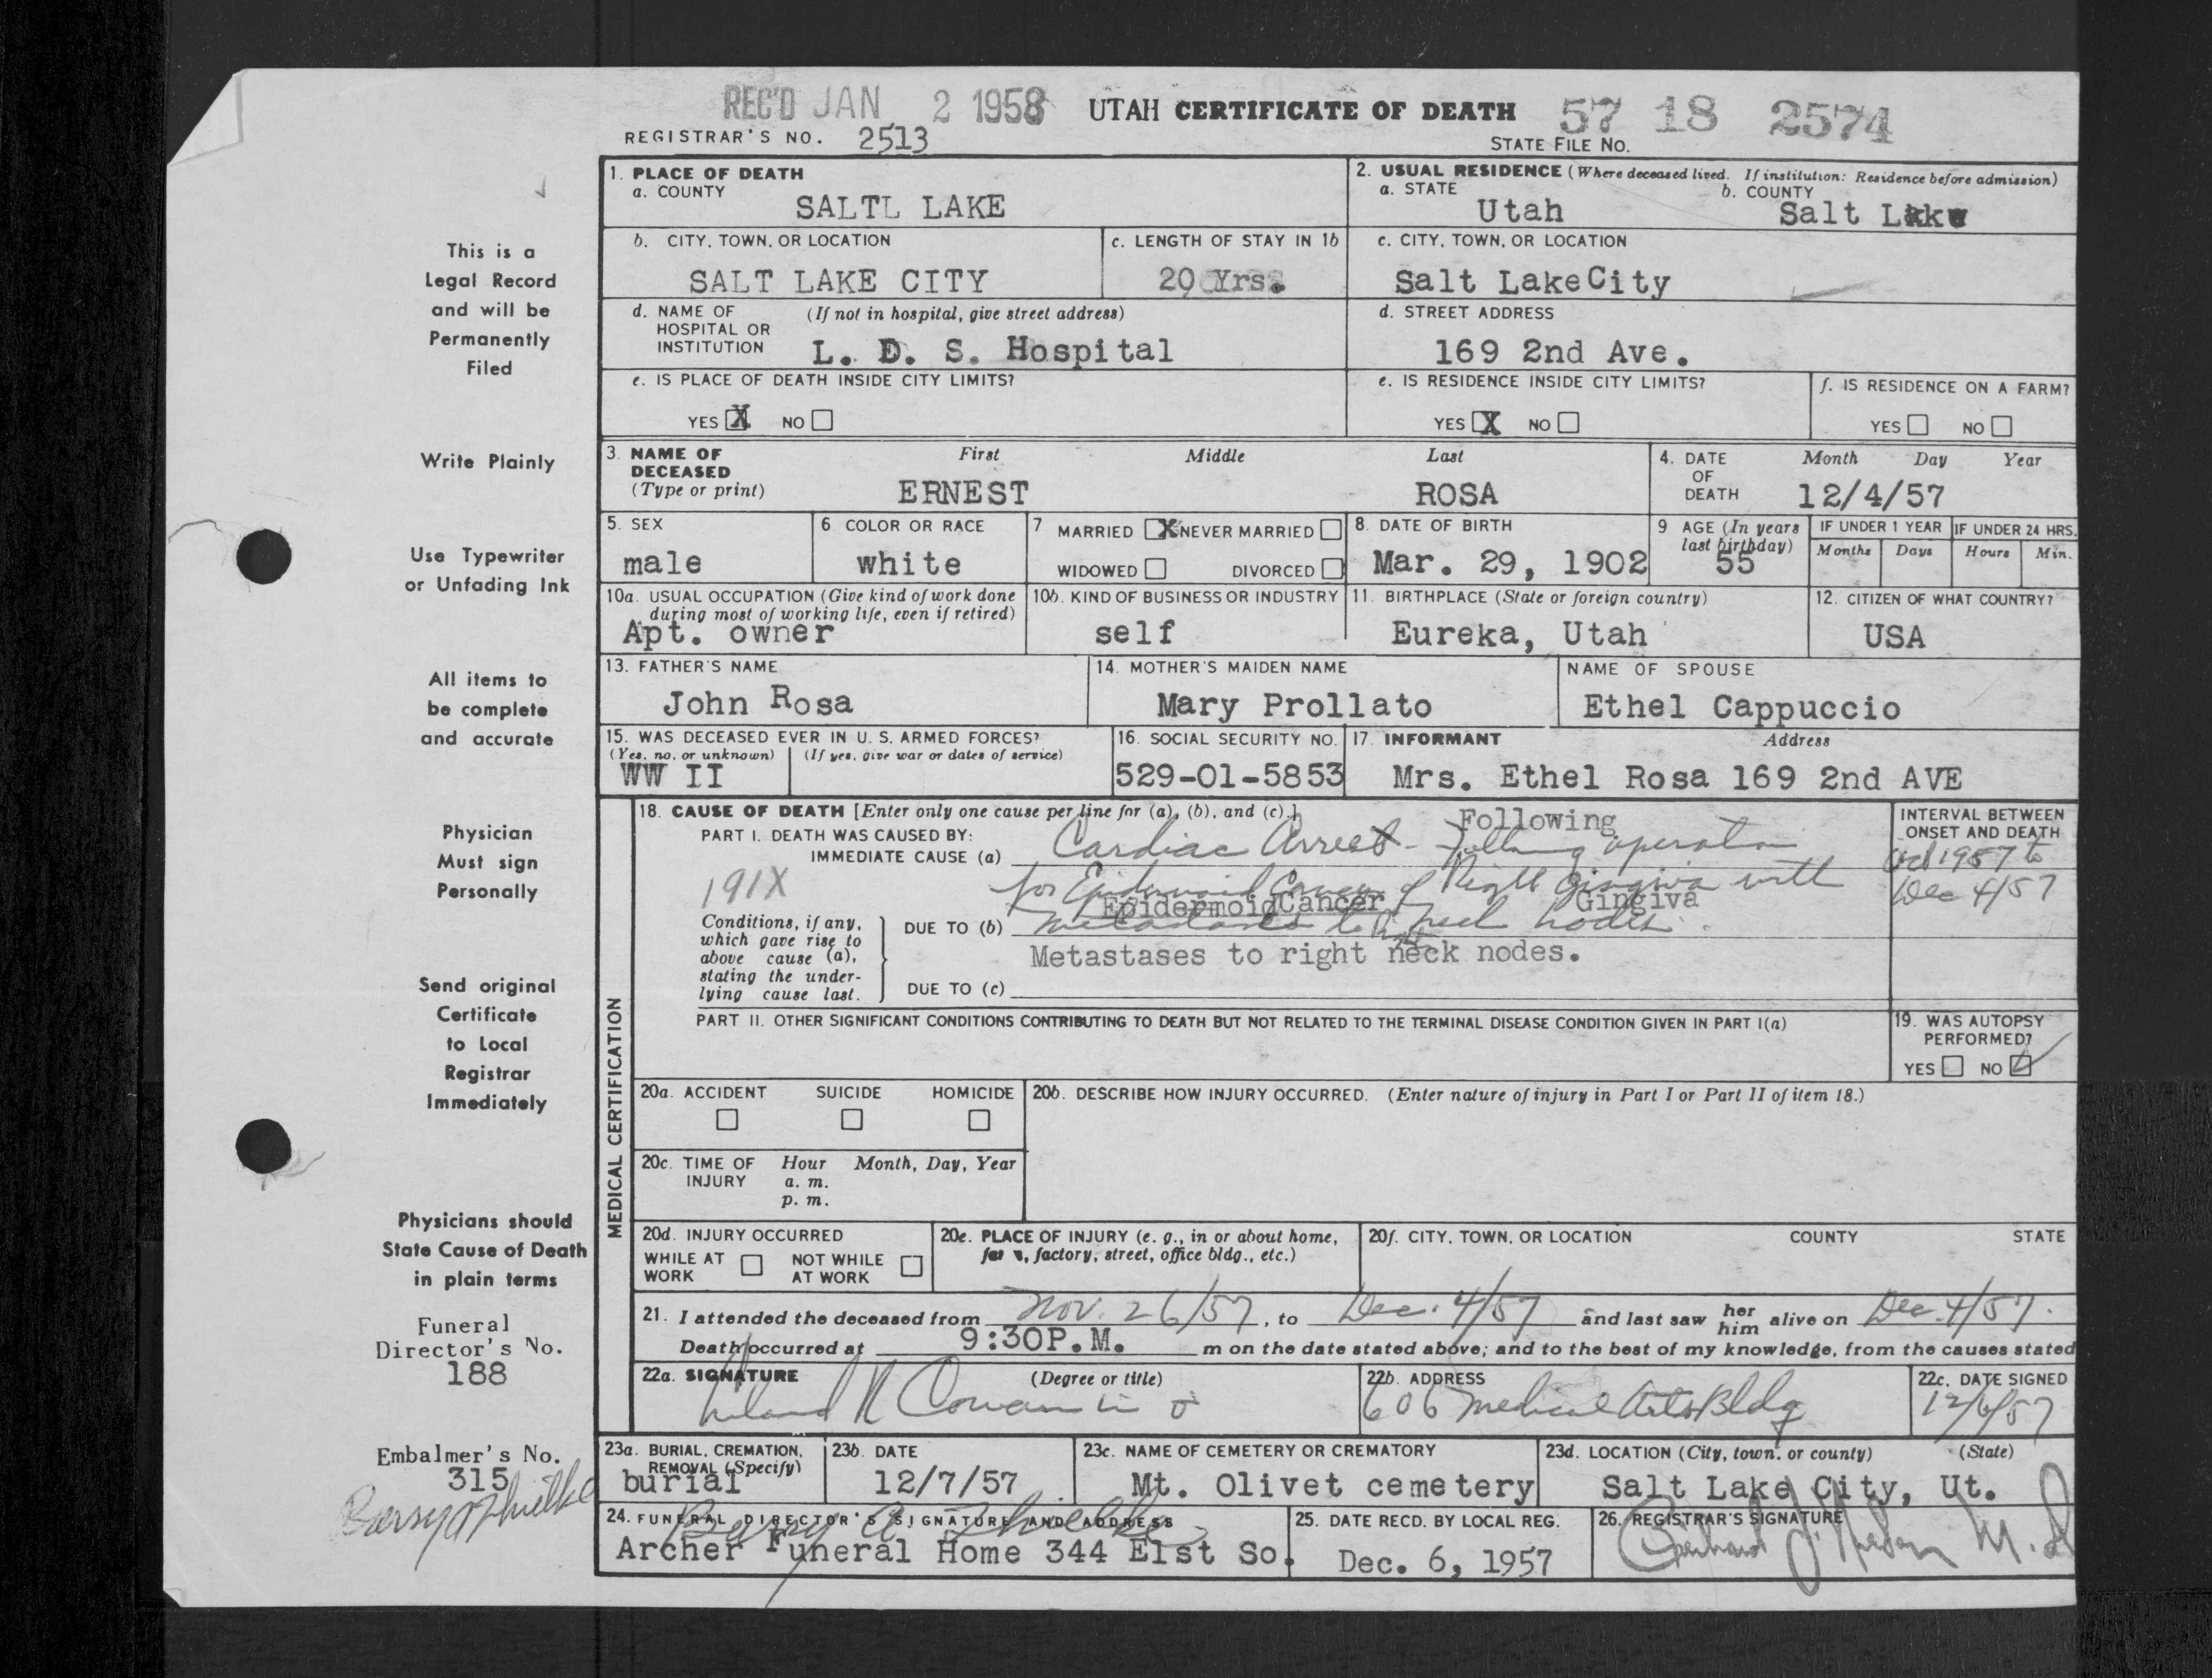 REC'D JAN 2 1958 UTAH CERTIFICATE OF DEATH 57 18 2574
REGISTRAR'S NO. 2513 STATE FILE NO.
1. PLACE OF DEATH
a. COUNTY
SALTL LAKE
2. USUAL RESIDENCE (Where deceased lived. If institution: Residence before admission)
a. STATE b. COUNTY
Utah Salt Lake
b. CITY, TOWN, OR LOCATION
SALT LAKE CITY
c. LENGTH OF STAY IN 1b
20 Yrs.
c. CITY, TOWN, OR LOCATION
Salt LakeCity
d. NAME OF HOSPITAL OR INSTITUTION (If not in hospital, give street address)
L. D. S. Hospital
d. STREET ADDRESS
169 2nd Ave.
e. IS PLACE OF DEATH INSIDE CITY LIMITS?
YES X NO
e. IS RESIDENCE INSIDE CITY LIMITS?
YES X NO
f. IS RESIDENCE ON A FARM?
YES NO
3. NAME OF DECEASED (Type or print)
First Middle Last
ERNEST ROSA
4. DATE OF DEATH
Month Day Year
12/4/57
5. SEX
male
6. COLOR OR RACE
white
7. MARRIED X NEVER MARRIED
WIDOWED DIVORCED
8. DATE OF BIRTH
Mar. 29, 1902
9 AGE (In years last birthday)
55
IF UNDER 1 YEAR
Months Days
IF UNDER 24 HRS.
Hours Min.
10a. USUAL OCCUPATION (Give kind of work done during most of working life, even if retired)
Apt. owner
10b. KIND OF BUSINESS OR INDUSTRY
self
11. BIRTHPLACE (State or foreign country)
Eureka, Utah
12. CITIZEN OF WHAT COUNTRY?
USA
13. FATHER'S NAME
John Rosa
14. MOTHER'S MAIDEN NAME
Mary Prollato
NAME OF SPOUSE
Ethel Cappuccio
15. WAS DECEASED EVER IN U. S. ARMED FORCES?
(Yes, no, or unknown) (If yes, give war or dates of service)
WW II
16. SOCIAL SECURITY NO.
529-01-5853
17. INFORMANT Address
Mrs. Ethel Rosa 169 2nd AVE
MEDICAL CERTIFICATION
18. CAUSE OF DEATH [Enter only one cause per line for (a), (b), and (c).]
PART I. DEATH WAS CAUSED BY:
Following
IMMEDIATE CAUSE (a) Cardiac Arrest - Following operation
191X
for Epidermoid Cancer of Right Gingiva with
EpidermoidCancer Gingiva
Conditions, if any, which gave rise to above cause (a), stating the underlying cause last.
DUE TO (b) metastases to right neck nodes.
Metastases to right neck nodes.
DUE TO (c)
INTERVAL BETWEEN ONSET AND DEATH
Oct 1957 to
Dec 4/57
PART II. OTHER SIGNIFICANT CONDITIONS CONTRIBUTING TO DEATH BUT NOT RELATED TO THE TERMINAL DISEASE CONDITION GIVEN IN PART I(a)
19. WAS AUTOPSY PERFORMED?
YES NO
20a. ACCIDENT SUICIDE HOMICIDE
20b. DESCRIBE HOW INJURY OCCURRED. (Enter nature of injury in Part I or Part II of item 18.)
20c. TIME OF INJURY Hour Month, Day, Year
a. m.
p. m.
20d. INJURY OCCURRED
WHILE AT WORK NOT WHILE AT WORK
20e. PLACE OF INJURY (e. g., in or about home, factory, street, office bldg., etc.)
20f. CITY, TOWN, OR LOCATION COUNTY STATE
21. I attended the deceased from Nov. 26/57, to Dec. 4/57 and last saw her him alive on Dec. 4/57.
Death occurred at 9:30P.M. m on the date stated above; and to the best of my knowledge, from the causes stated
22a. SIGNATURE (Degree or title)
Leland R Cowan
22b. ADDRESS
606 Medical Arts Bldg
22c. DATE SIGNED
12/6/57
23a. BURIAL, CREMATION, REMOVAL (Specify)
burial
23b. DATE
12/7/57
23c. NAME OF CEMETERY OR CREMATORY
Mt. Olivet cemetery
23d. LOCATION (City, town, or county) (State)
Salt Lake City, Ut.
24. FUNERAL DIRECTOR'S SIGNATURE AND ADDRESS
Barry A.
Archer Funeral Home 344 E1st So.
25. DATE RECD. BY LOCAL REG.
Dec. 6, 1957
26. REGISTRAR'S SIGNATURE
M.D
This is a
Legal Record
and will be
Permanently
Filed
Write Plainly
Use Typewriter
or Unfading Ink
All items to
be complete
and accurate
Physician
Must sign
Personally
Send original
Certificate
to Local
Registrar
Immediately
Physicians should
State Cause of Death
in plain terms
Funeral
Director's No.
188
Embalmer's No.
315